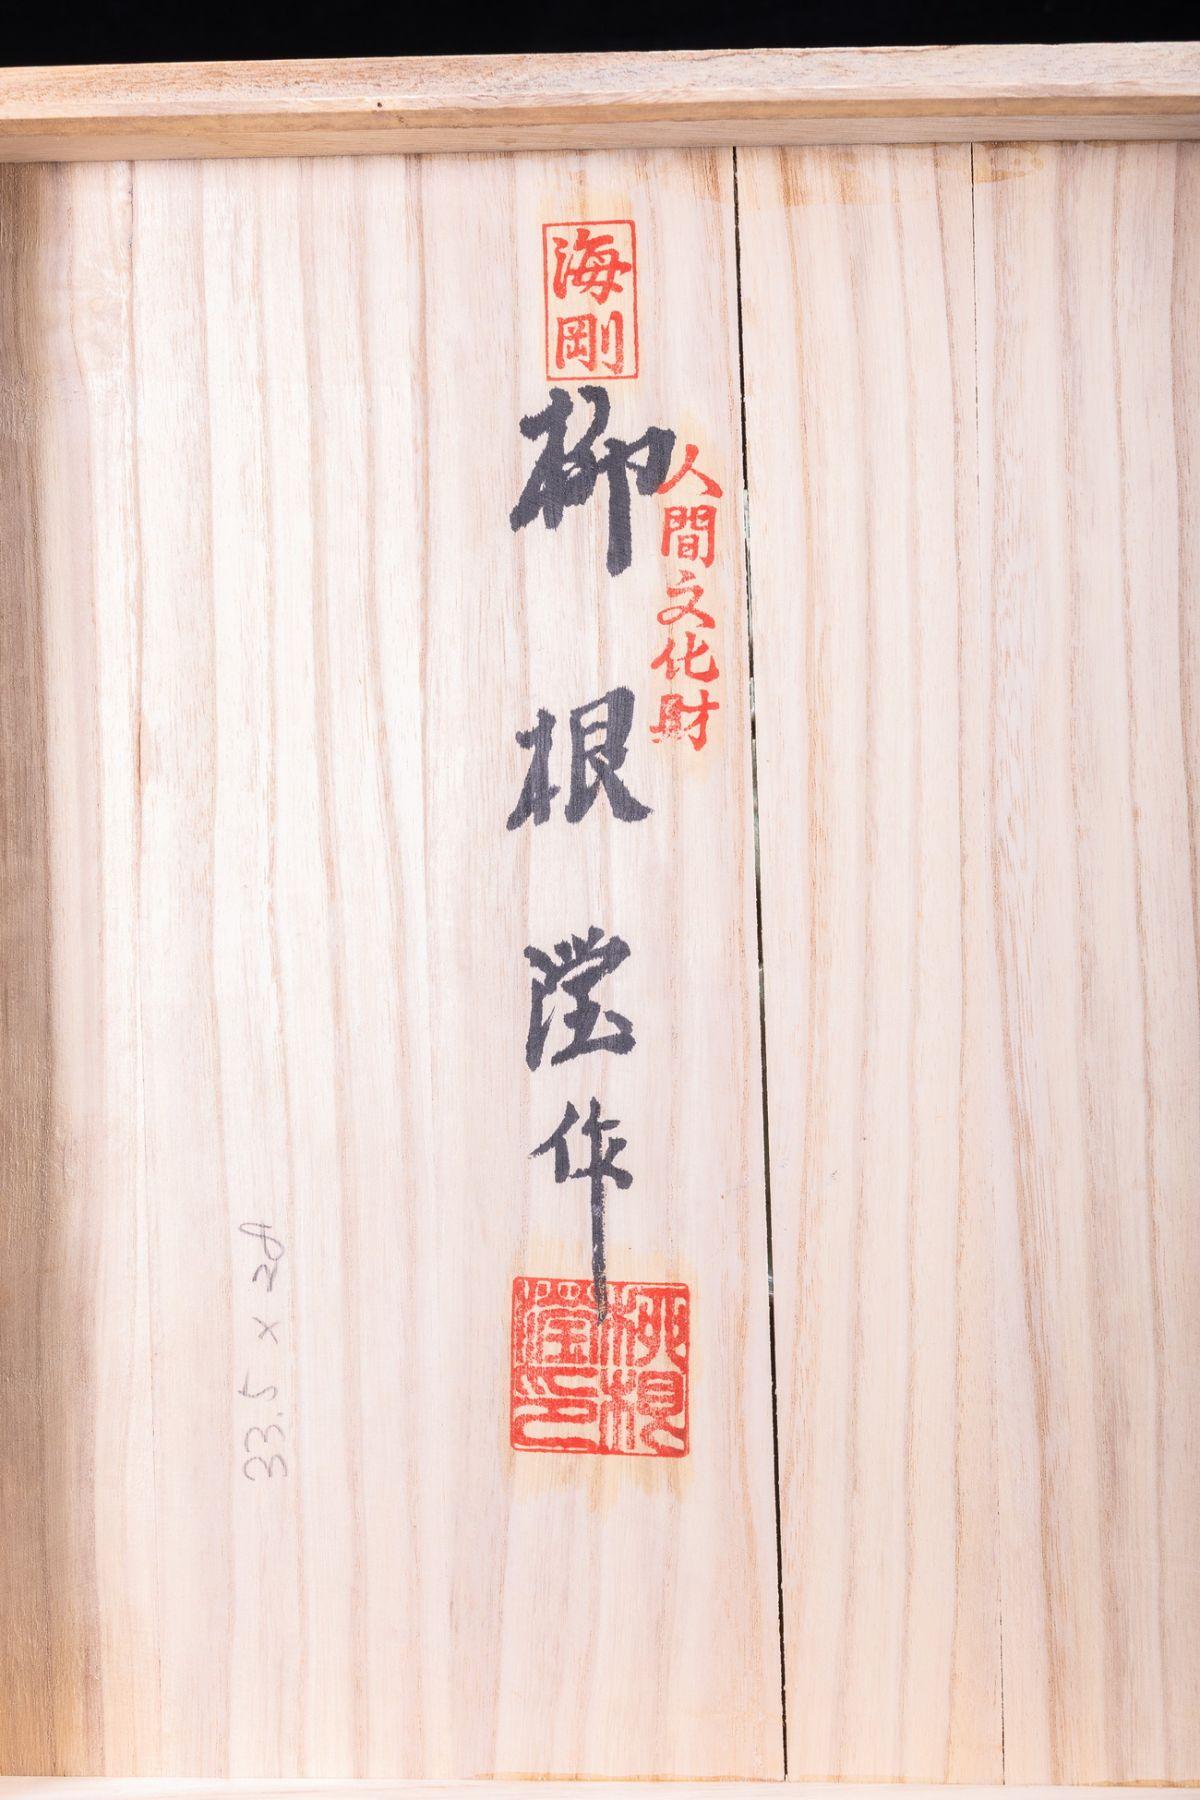 海剛
人間文化財
柳根瀅作
柳根
瀅印
33.5 x 28